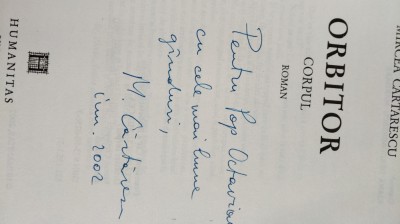 MIRCEA CĂRTĂRESCU
ORBITOR
CORPUL
ROMAN
Pentru Pop Octavian
cu cele mai bune
gânduri,
M. Cărtărescu
iun. 2002
HUMANITAS